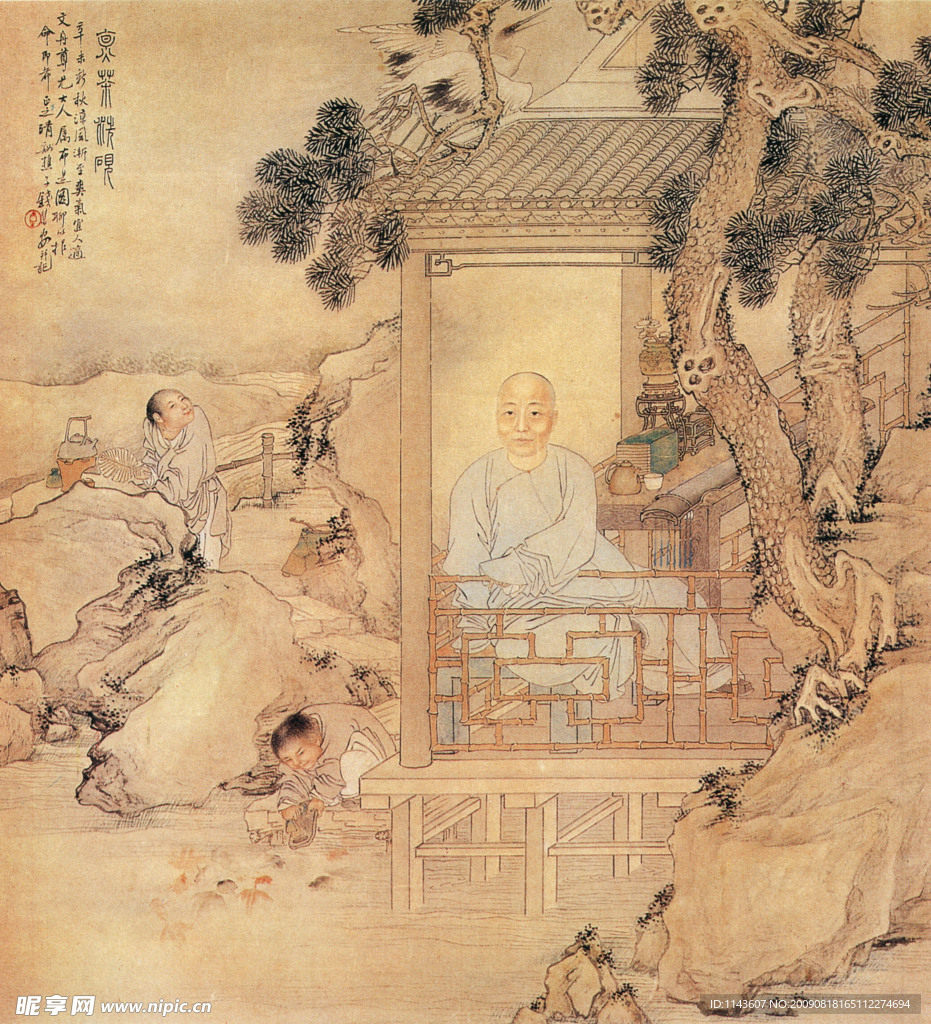 烹茶洗硯
辛未新秋涼風漸至爽氣宜人適
文舟尊兄大人屬布是圖聊以報
命即希正之清谿樵子錢慧安并記
昵享网 www.nipic.cn
ID:1143607 NO:20090818165112274694